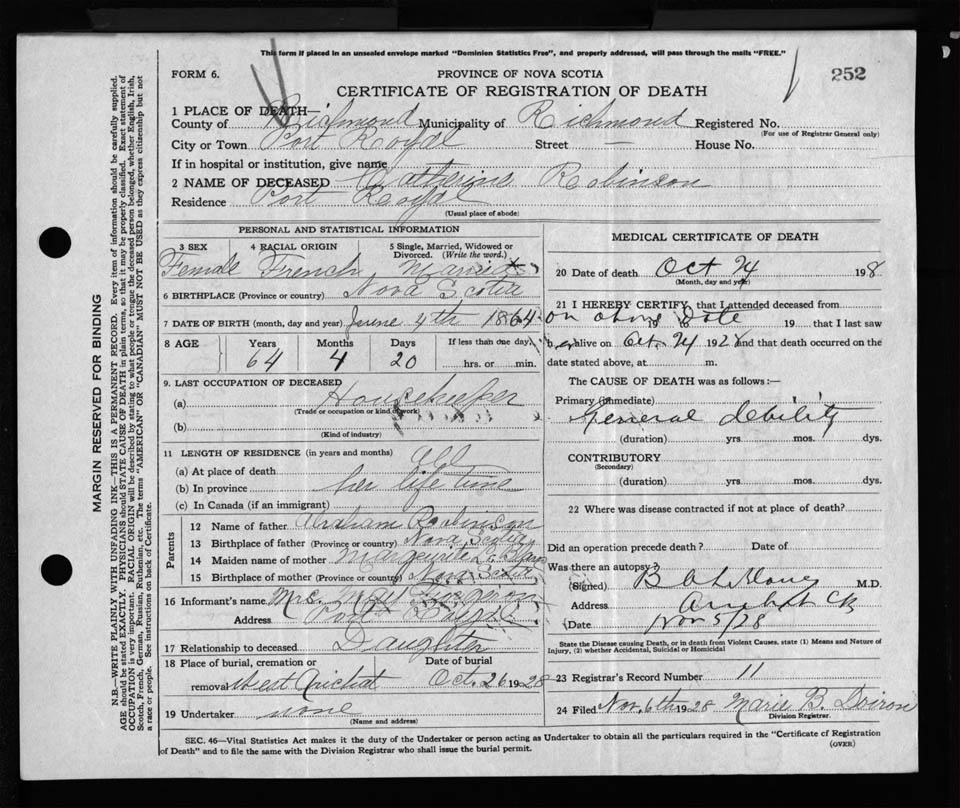 This form if placed in an unsealed envelope marked "Dominion Statistics Free", and properly addressed, will pass through the mails "FREE."
FORM 6.
PROVINCE OF NOVA SCOTIA
252
CERTIFICATE OF REGISTRATION OF DEATH
1 PLACE OF DEATH—
County of Richmond Municipality of Richmond Registered No.
(For use of Registrar General only)
City or Town Port Royal Street — House No.
If in hospital or institution, give name
2 NAME OF DECEASED Catherine Robinson
Residence Port Royal
(Usual place of abode)
PERSONAL AND STATISTICAL INFORMATION
3 SEX 4 RACIAL ORIGIN 5 Single, Married, Widowed or Divorced. (Write the word.)
Female French Married
6 BIRTHPLACE (Province or country) Nova Scotia
7 DATE OF BIRTH (month, day and year) June 4th 1864
8 AGE Years Months Days If less than one day,
64 4 20 hrs. or min.
9. LAST OCCUPATION OF DECEASED
(a) Housekeeper
(Trade or occupation or kind of work)
(b)
(Kind of industry)
11 LENGTH OF RESIDENCE (in years and months)
(a) At place of death all
(b) In province her life time
(c) In Canada (if an immigrant)
Parents
12 Name of father Abraham Robinson
13 Birthplace of father (Province or country) Nova Scotia
14 Maiden name of mother Marguerite
15 Birthplace of mother (Province or country) Nova Scotia
16 Informant's name Mrs.
Address Port Royal
17 Relationship to deceased Daughter
18 Place of burial, cremation or Date of burial
removal West Arichat Oct. 26 1928
19 Undertaker none
(Name and address)
MEDICAL CERTIFICATE OF DEATH
20 Date of death Oct 24 198
(Month, day and year)
21 I HEREBY CERTIFY, that I attended deceased from
on above Date 19 8 19 that I last saw
her alive on Oct. 24 1928 and that death occurred on the
date stated above, at m.
The CAUSE OF DEATH was as follows:—
Primary (immediate)
General debility
(duration) yrs. mos. dys.
CONTRIBUTORY
(Secondary)
(duration) yrs. mos. dys.
22 Where was disease contracted if not at place of death?
Did an operation precede death? Date of
Was there an autopsy?
(Signed) M.D.
Address
Date Nov 5/28
State the Disease causing Death, or in death from Violent Causes, state (1) Means and Nature of
Injury, (2) whether Accidental, Suicidal or Homicidal
23 Registrar's Record Number 11
24 Filed Nov. 6th 1928 Marie B. Doiron
Division Registrar.
SEC. 46—Vital Statistics Act makes it the duty of the Undertaker or person acting as Undertaker to obtain all the particulars required in the "Certificate of Registration
of Death" and to file the same with the Division Registrar who shall issue the burial permit.
(OVER)
MARGIN RESERVED FOR BINDING
N.B.—WRITE PLAINLY WITH UNFADING INK—THIS IS A PERMANENT RECORD. Every item of information should be carefully supplied.
AGE should be stated EXACTLY. PHYSICIANS should STATE CAUSE OF DEATH in plain terms, so that it may be properly classified. Exact statement of
OCCUPATION is very important. RACIAL ORIGIN will be described by stating to what people or tongue the deceased person belonged, whether English, Irish,
Scotch, French, German, Russian, Ruthenian, etc. The terms "AMERICAN" OR "CANADIAN" MUST NOT BE USED as they express citizenship but not
a race or people. See instructions on back of Certificate.